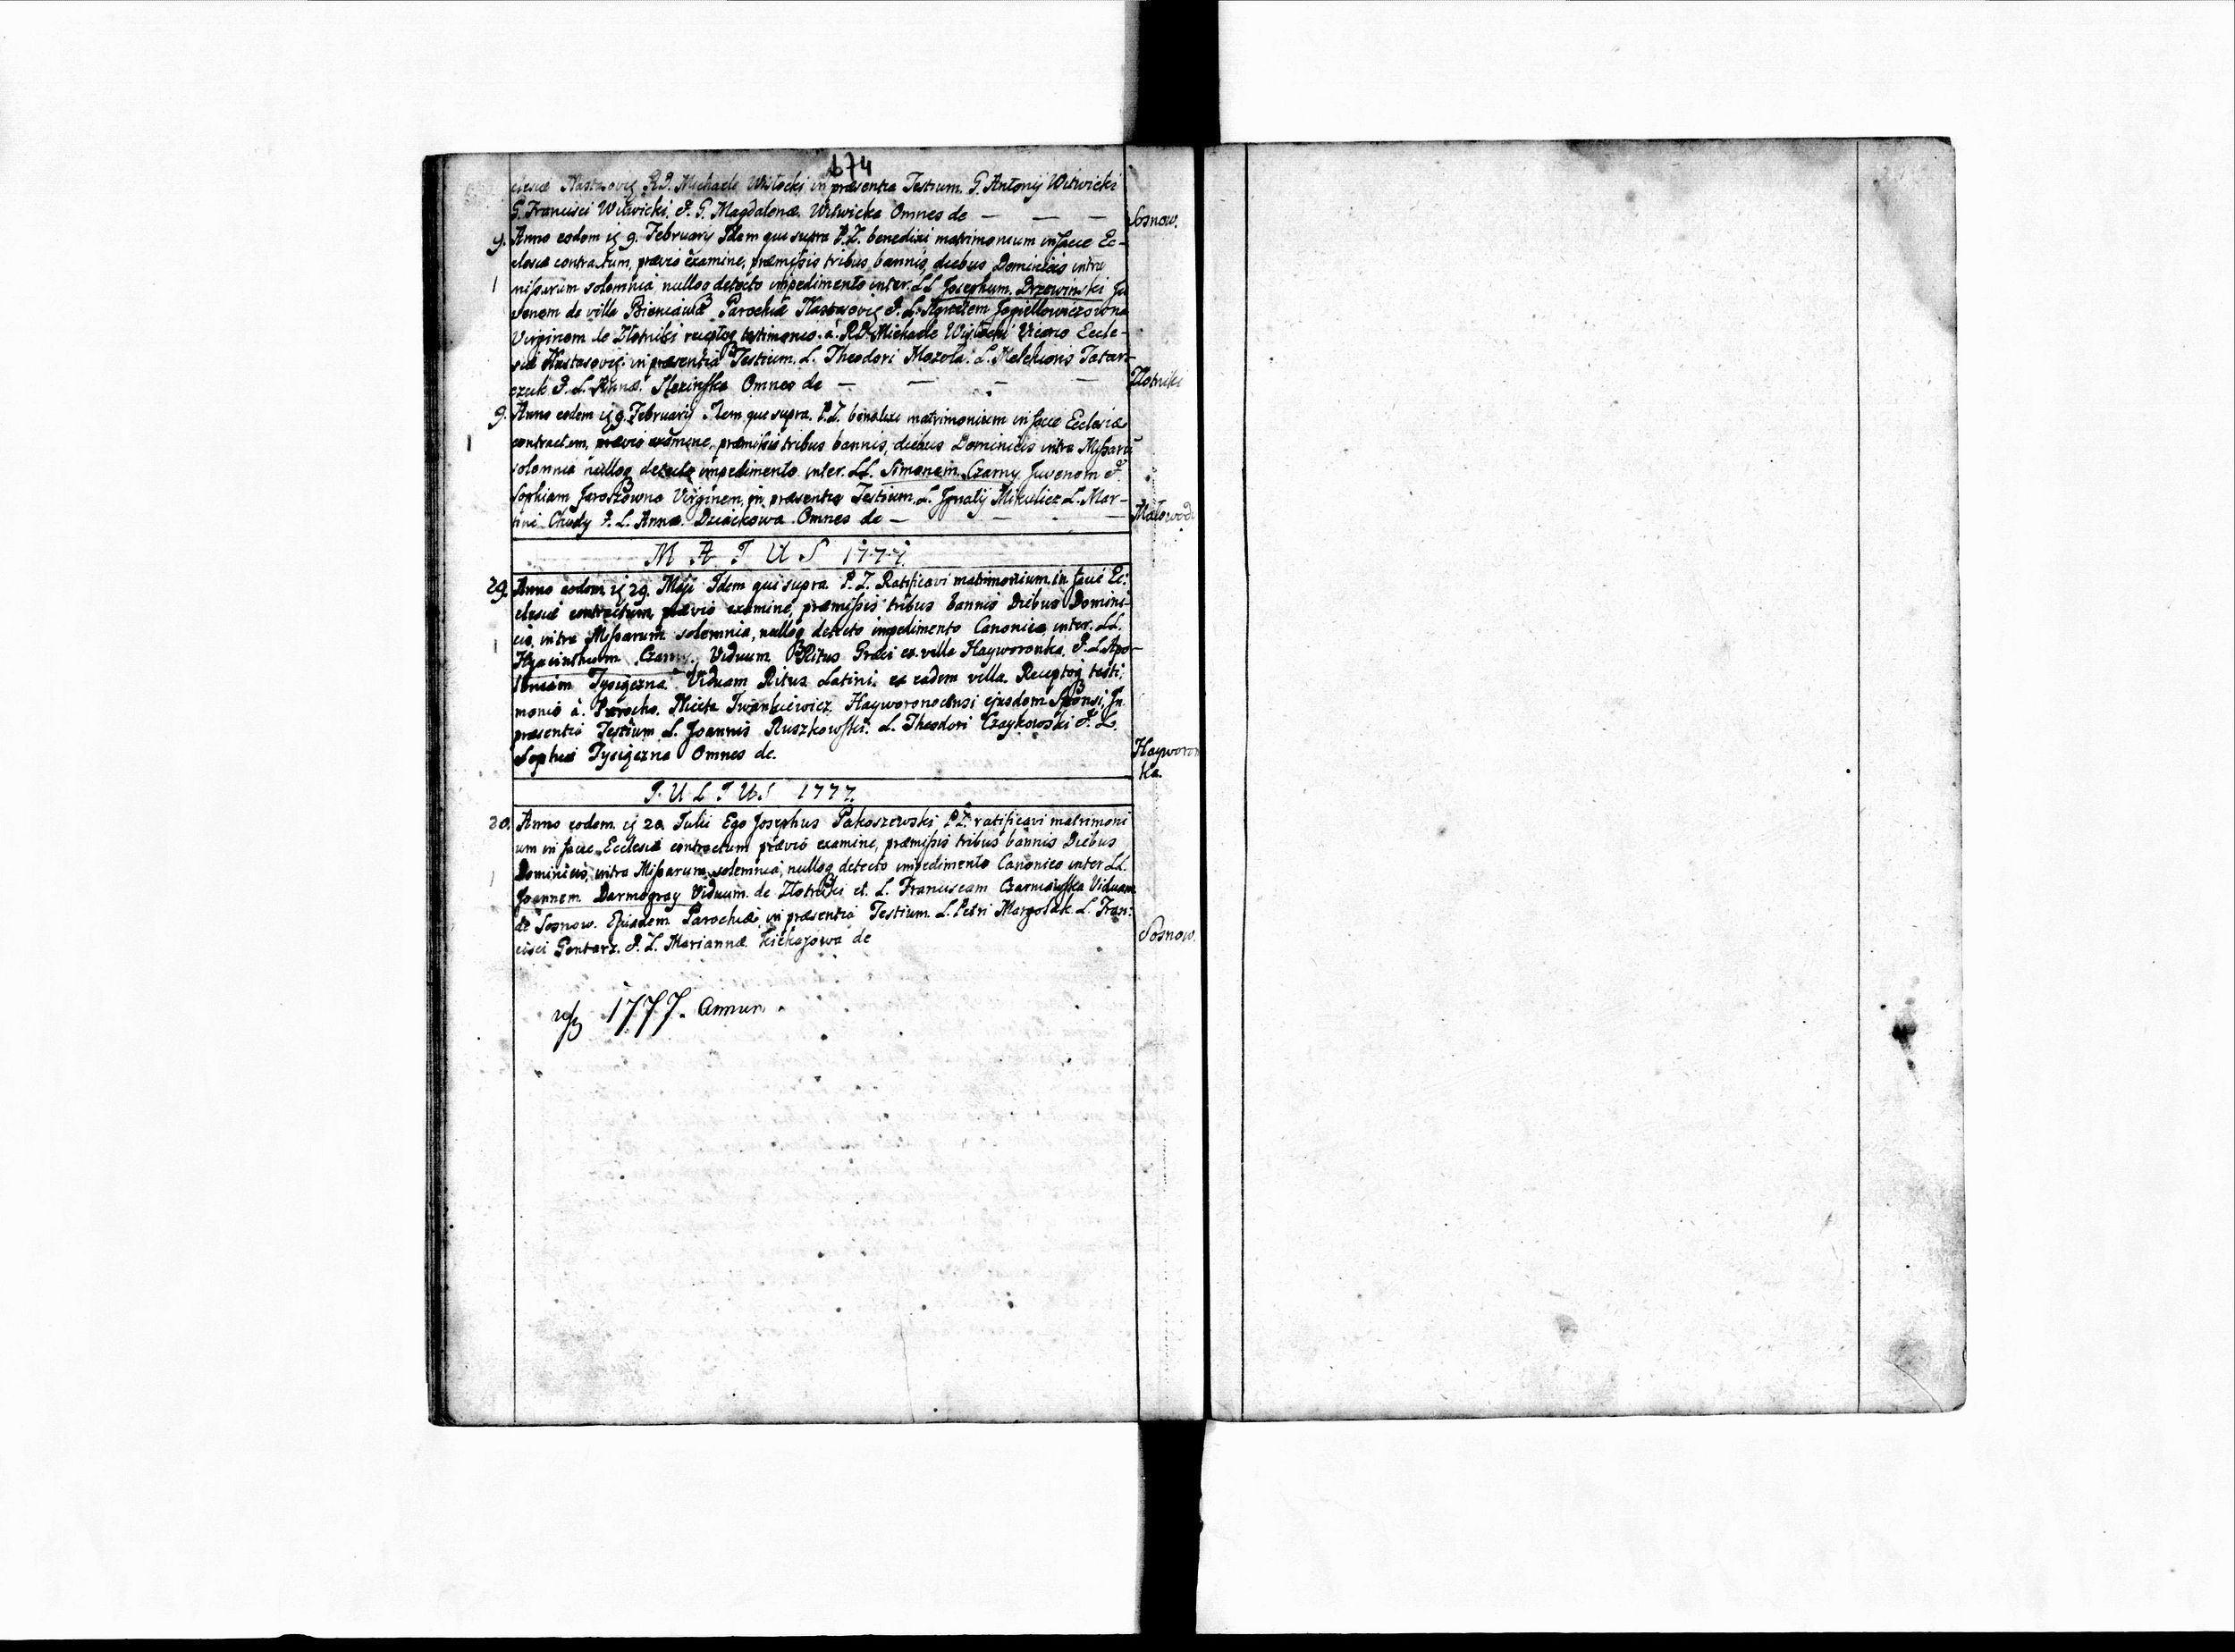 174
clesiæ Nastasoviẽ R.D. Michaele Wisłocki in præsentia Testium. G. Antonij Witwicki
G. Francisci Witwicki. & G. Magdalenæ Witwicka Omnes de — — — Sosnow.
9. Anno eodem 9. February Idem qui supra P.Z. benedixi matrimonium in facie Ec-
clesiæ contractum, prævio examine, præmissis tribus bannis, diebus Dominicis intra
1 missarum solemnia nulloq detecto impedimento inter LL Josephum Drzewinski Ju
venem de villa Parochiæ & L. Agnetem Jagiellowiczowna
Virginem de Złotniki receptoq testimonio à R.D. Michaele Wisłocki Vicario Eccle-
siæ in præsentia Testium. L. Theodori Mazola. L. Melchioris Tatar-
czuk & L. Annæ Omnes de — — — — Zlotniki
9. Anno eodem 9. February Idem qui supra P.Z. benedixi matrimonium in facie Ecclesiæ
1 contractum, prævio examine, præmissis tribus bannis, diebus Dominicis intra Missarũ
solemnia nulloq detecto impedimento inter LL. Simonem Czarny Juvenem &
Sophiam Jaroszowna Virginem, in præsentia Testium. L. Ignatij Mikulicz L. Mar-
tini Chudy & L. Annæ Dziackowa Omnes de — — — — Małowod
M A I U S 1777.
29. Anno eodem 29. Maji Idem qui supra P.Z. Ratificavi matrimonium in facie Ec:
clesiæ contractum, prævio examine, præmissis tribus bannis Diebus Domini-
cis, intra Missarum solemnia, nulloq detecto impedimento Canonico inter LL.
1 Hyacinthum Czarny Viduum Ritus Græci ex villa Hayworonka, & L. Apo-
loniam Viduam Ritus Latini ex eadem villa. Receptoq testi:
monio à Parocho Iwankiewicz Hayworonocensi ejusdem Sponsi, In
præsentia Testium L. Joannis Ruszkowski. L. Theodori Czaykowski & L.
Sophiæ Omnes de. Hayworon
ka.
I U L I U S 1777.
20. Anno eodem 20 Julii Ego Josephus Pakoszewski P.Z. ratificavi matrimoni
um in facie Ecclesiæ contractum prævio examine, præmissis tribus bannis Diebus
Dominicis, intra Missarum solemnia, nulloq detecto impedimento Canonico inter LL.
1 Joannem Darmogray Viduum de Zlotniki et L. Franciscam Czarniawska Viduam
de Sosnow. Ejusdem Parochiæ in præsentia Testium L. Petri Margolak L. Fran:
cisci & L. Mariannæ de Sosnow.
1777. Annum